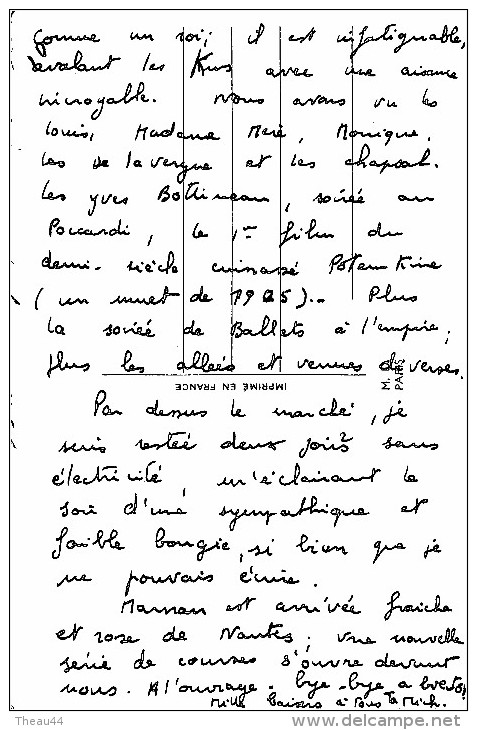 comme un roi; il est infatigable,
avalant les Kms avec une aisance
incroyable. Nous avons vu les
Louis, Madame Meré, Monique,
les de la vergne et les chapsal.
les yves Bottineau, soirée au
Poccardi, le 1er film du
demi-siècle cuirassé Potemkine
(un muet de 1925).. Plus
la soirée de Ballets à l'empire,
plus les allées et venues diverses.
IMPRIMÉ EN FRANCE
M.
PARIS
Par dessus le marché, je
suis restée deux jours sans
électricité, m'éclairant le
soir d'une sympathique et
faible bougie, si bien que je
ne pouvais écrire.
Maman est arrivée fraiche
et rose de Nantes; une nouvelle
série de courses s'ouvre devant
nous. A l'ouvrage. bye-bye a
Mille baisers à tous ta Mich.
Theau44
delcampe.net